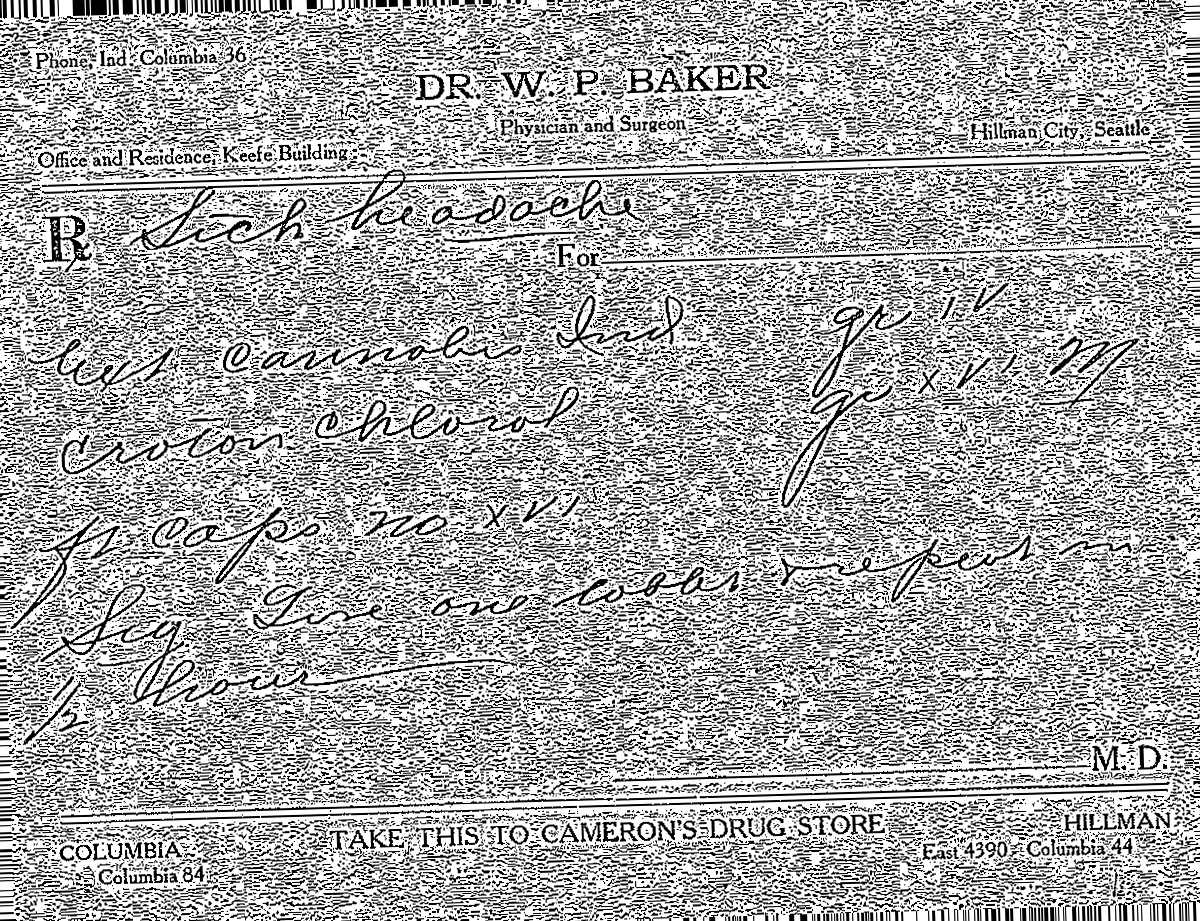 Phone, Ind. Columbia 36
DR. W. P. BAKER
Physician and Surgeon
Office and Residence, Keefe Building
Hillman City, Seattle
℞ Sick headache
For
Ext Cannabis Ind gr iv
Croton Chloral gr xvi M
ft caps no xvi
Sig one & repeat in
½ hour
M. D.
TAKE THIS TO CAMERON'S DRUG STORE
COLUMBIA
Columbia 84
HILLMAN
East 4390 - Columbia 44